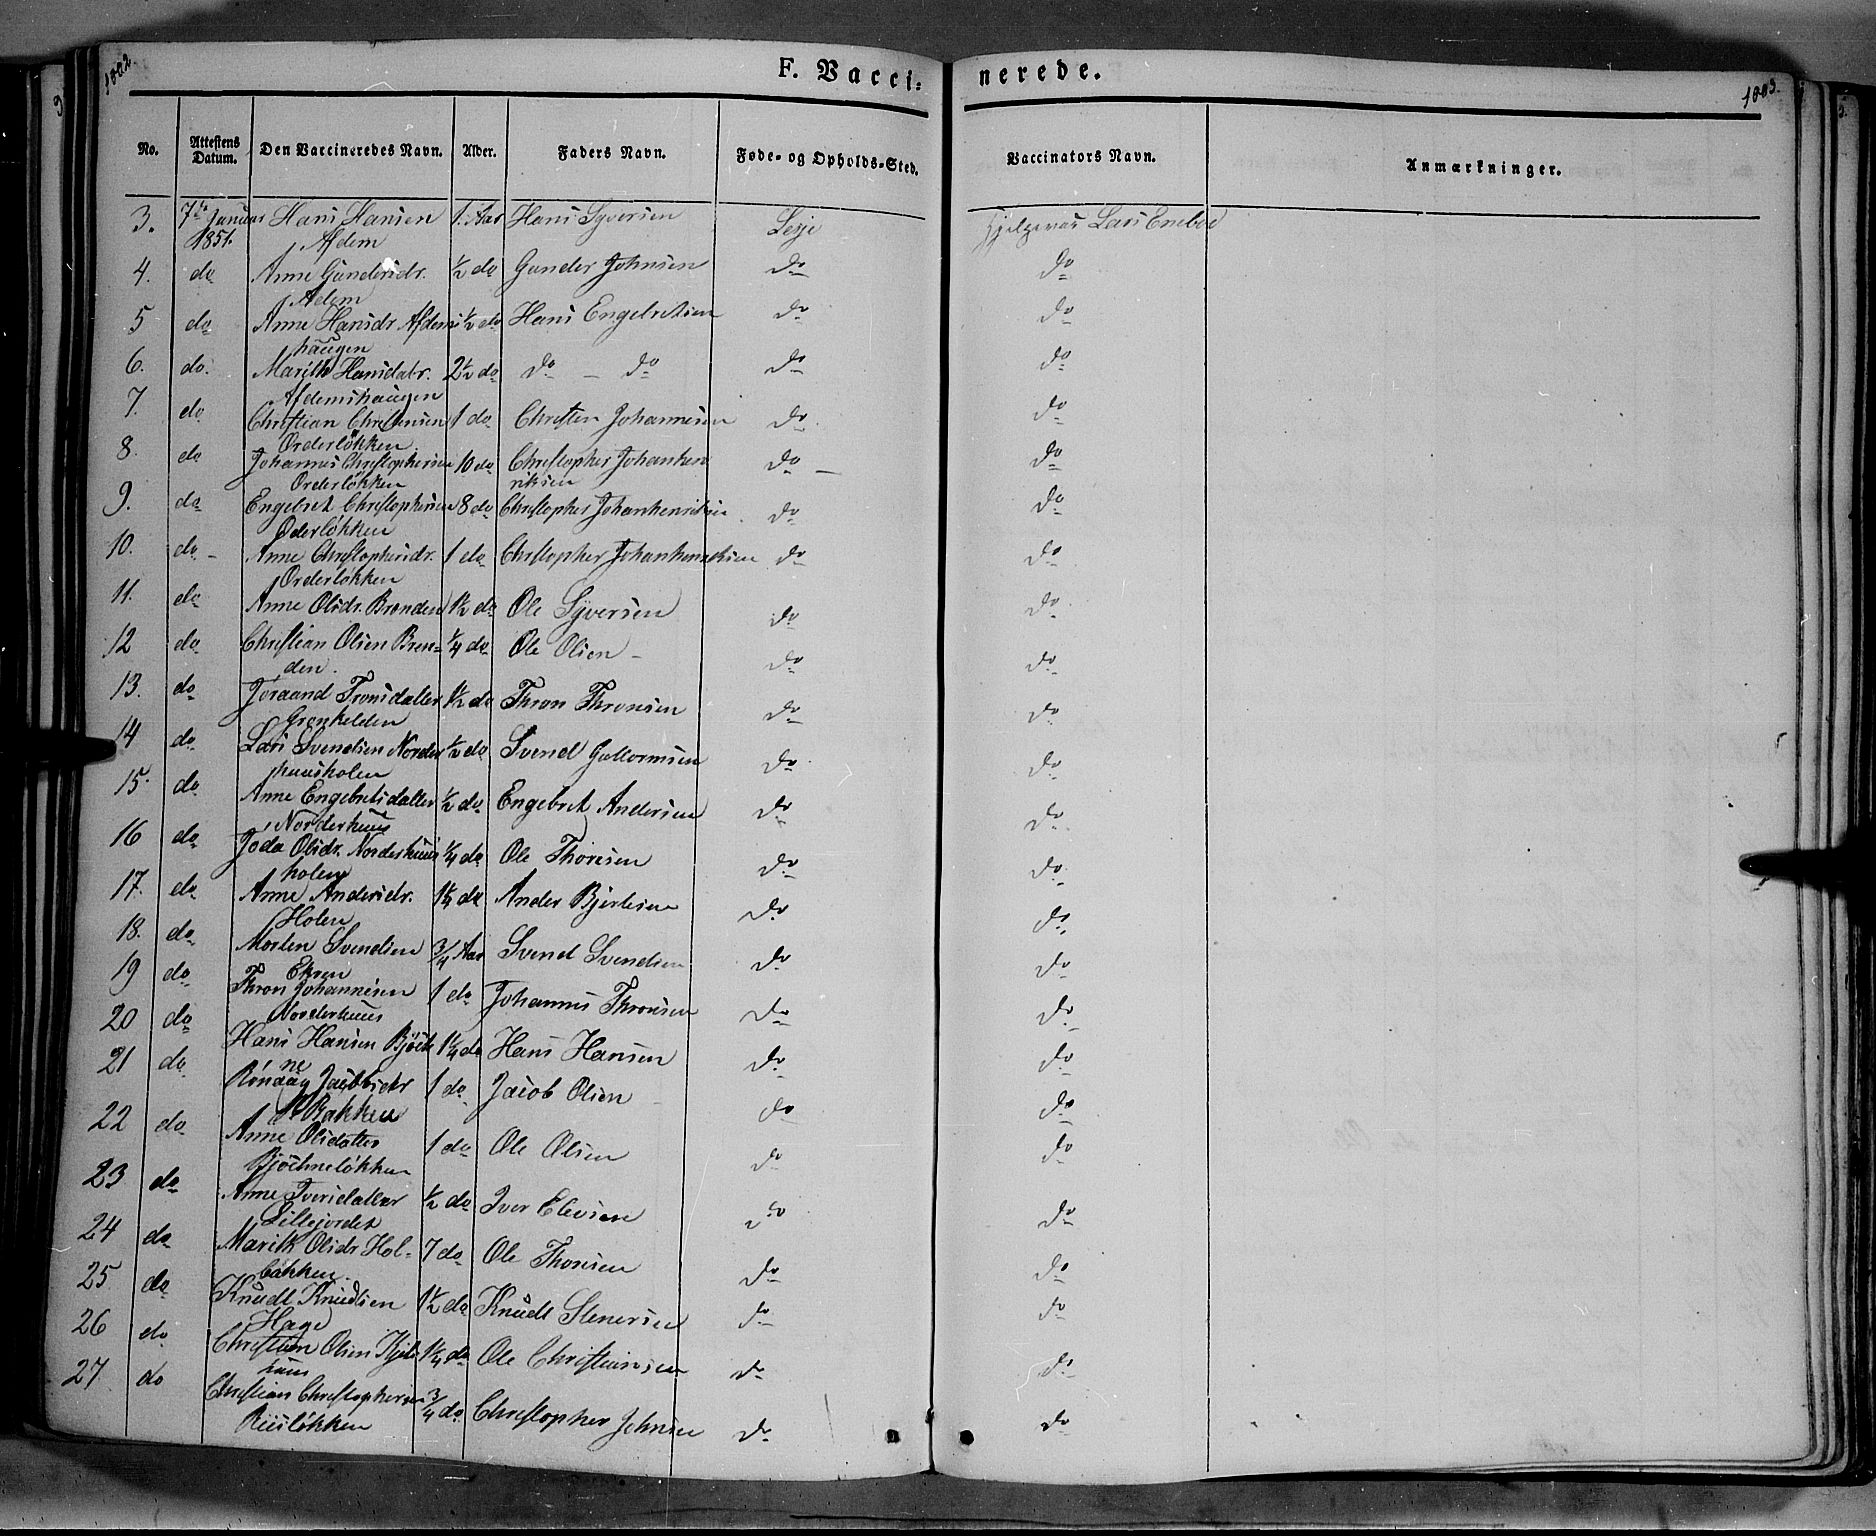 1002.
F. Vacci:
nerede.
1003.
No. Attestens Datum. Den Vaccineredes Navn. Alder. Faders Navn. Føde- og Opholds-Sted. Vaccinators Navn. Anmærkninger.
3. 7de Januar Hans Hansen 1. Aar Hans Syversen Lesje Lars Eneboe
1851. Afdem
4. do Anne Gundersdr. ½ do Gunder Johnsen do do
Afdem
5 do Anne Hansdr Afdems ½ do Hans Engebretsen do do
haugen
6. do. Marith Hansdatr. 2½ do do – do do do
Afdemshaugen
7. do Christian Christensen 1 do Christen Johannesen do do
Orderløkken
8. do Johannes Christophersen 10 do Christopher Johanhen do – do
Orderløkken riksen
9. do Engebret Christophersen 8 do Christopher Johanhenriksen do do
Oderløkken
10. do – Anne Christophersdr. 1 do Christopher Johanhenriksen do do
Orderløkken
11. do Anne Olsdr. Brenden 1½ do Ole Syversen do do
12 do Christian Olsen Bren- ¼ do Ole Olsen – do do
den.
13. do Joraand Tronsdatter 1½ do Thron Thronsen do do
Grønkelden
14 do Lars Svendsen Norder ½ do Svend Guttormsen do do
huusholen
15. do Anne Engebretsdatter ½ do Engebret Andersen do do
Norderhuus
16 do Joda Olsdr. Norderhuus ¼ do Ole Thoresen do do
holen
17. do Anne Andersdr. 1¼ do Ander do do
Holen
18. do Morten Svendsen ¾ Aar Svend Svendsen do do
Ekren
19 do Thron Johannesen 1 do Johannes Thronsen do do
Norderhuus
20 do Hans Hansen Bjøck 1¼ do Hans Hansen do do
ne
21 do Rønnaug Jacobsdr 1 do Jacob Olsen do do
Bakken
22 do Anne Olsdatter 1 do Ole Olsen do do
Bjøckneløkken
23 do Anne Iversdatter ½ do Iver Elevsen do do
Lillejordet
24 do Marith Olsdr Hol- 7 do Ole Thoresen do do
bakken
25 do Knudt Knudsen 1½ do Knudt Stenersen do do
Hage
26 do Christian Olsen Kjels 1¼ do Ole Christiansen do do
huus
27 do Christian Christophersen ¾ do Christopher Johnsen do do
Riisløkken